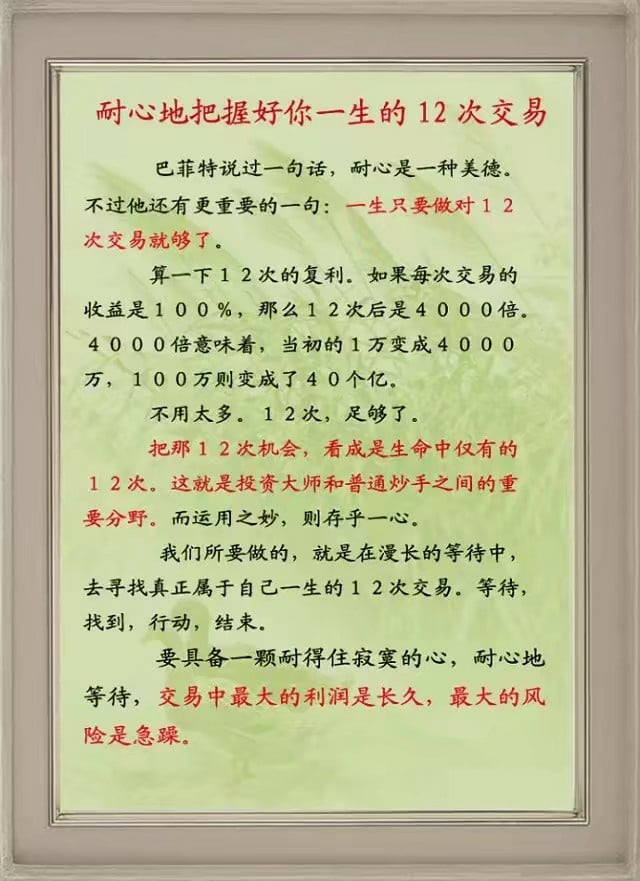 耐心地把握好你一生的12次交易
巴菲特说过一句话，耐心是一种美德。
不过他还有更重要的一句：一生只要做对１２
次交易就够了。
算一下１２次的复利。如果每次交易的
收益是１００％，那么１２次后是４０００倍。
４０００倍意味着，当初的１万变成４０００
万，１００万则变成了４０个亿。
不用太多。１２次，足够了。
把那１２次机会，看成是生命中仅有的
１２次。这就是投资大师和普通炒手之间的重
要分野。而运用之妙，则存乎一心。
我们所要做的，就是在漫长的等待中，
去寻找真正属于自己一生的１２次交易。等待，
找到，行动，结束。
要具备一颗耐得住寂寞的心，耐心地
等待，交易中最大的利润是长久，最大的风
险是急躁。